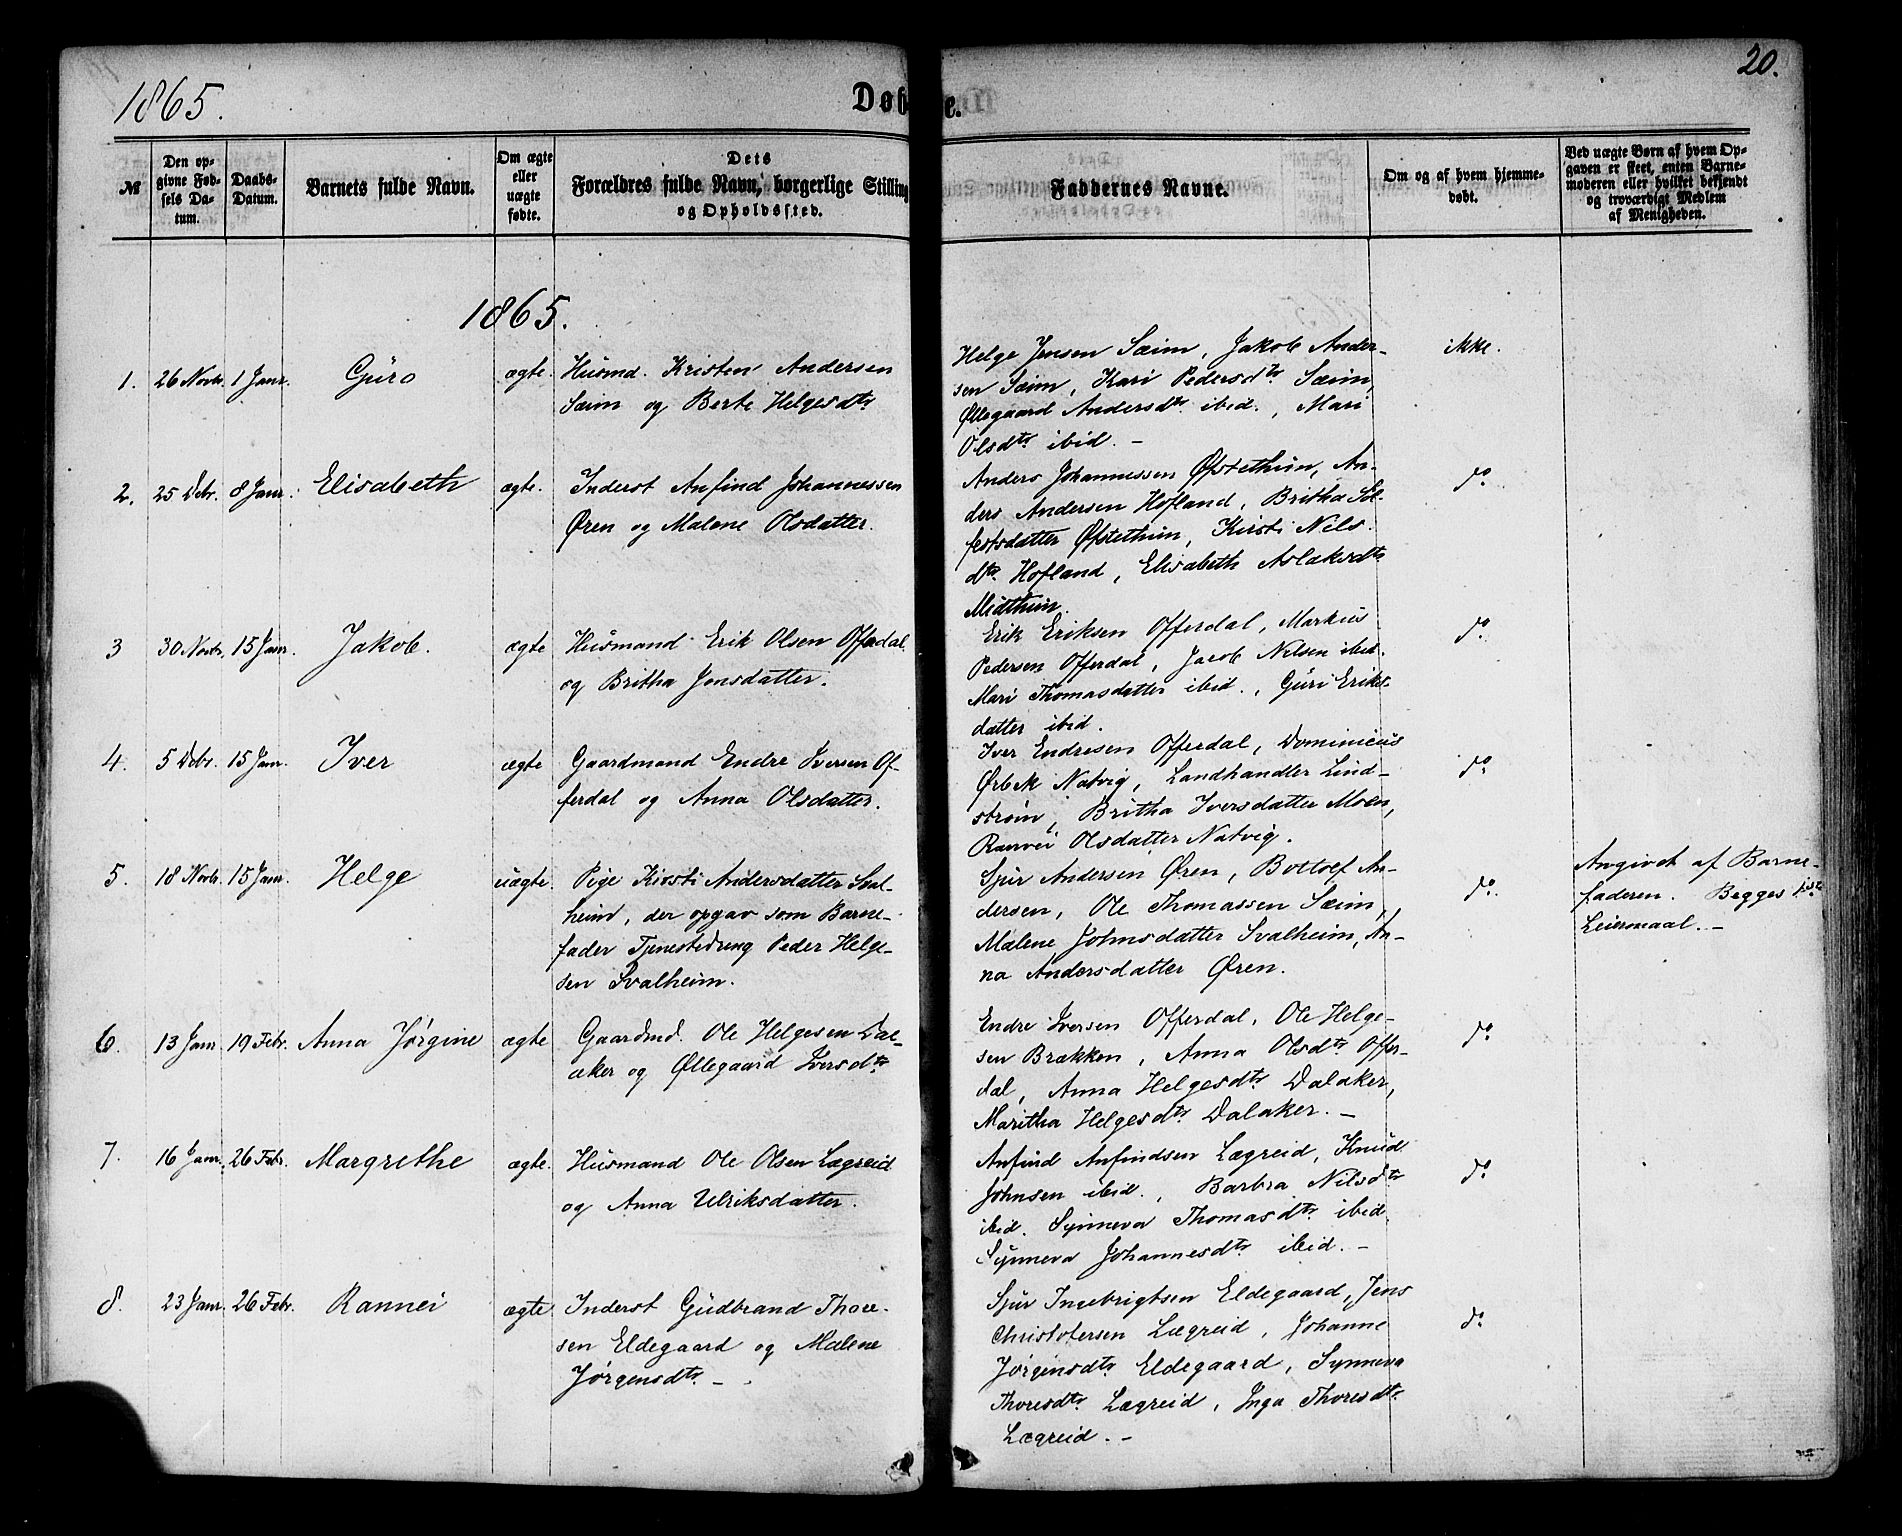 1865.
Døbte.
20.
№
Den opgivne Fødsels Datum.
Daabs-Datum.
Barnets fulde Navn.
Om ægte eller uægte fødte.
Dets Forældres fulde Navn, borgerlige Stilling og Opholdssted.
Faddernes Navne.
Om og af hvem hjemmedøbt.
Ved uægte Børn af hvem Opgaven er skeet, enten Barnemoderen eller hvilket bekjendt og troværdigt Medlem af Menigheden.
1865.
1. 26 Novbr. 1 Janr. Guro ægte. Husmd. Kristen Andersen
Sæim og Berte Helgesdtr
Helge Jensen Sæim, Jakob Ander-
sen Sæim, Kari Pedersdtr. Sæim,
Øllegaard Andersdtr. ibid., Mari
Olsdtr. ibid. –
ikke.
2. 25 Debr. 8 Janr. Elisabeth ægte. Inderst Anfind Johannessen
Øren og Malene Olsdatter.
Anders Johannessen Øfstethun, An-
ders Andersen Hofland, Britha Sol-
festsdatter Øfstethun, Kirsti Nils-
dtr. Hofland, Elisabeth Aslaksdtr.
Midthun.
do.
3 30 Novbr. 15 Janr. Jakob. ægte Husmand Erik Olsen Offerdal
og Britha Jensdatter.
Erik Eriksen Offerdal, Markus
Pedersen Offerdal, Jacob Nilsen ibid.
Mari Thomasdatter ibid., Guri Eriks-
datter ibid.
do.
4. 5 Debr. 15 Janr. Iver ægte Gaardmand Endre Iversen Of-
ferdal og Anna Olsdatter.
Iver Endresen Offerdal, Dominicus
Ørbek Natvig, Landhandler Lind-
strøm, Britha Iversdatter Moen,
Rannei Olsdatter Natvig.
do.
5. 18 Novbr. 15 Janr. Helge uægte. Pige Kirsti Andersdatter Sval-
heim, der opgav som Barne-
fader Tjenestedreng Peder Helge-
sen Svalheim.
Sjur Andersen Øren, Bottolf An-
dersen, Ole Thomassen Sæim,
Malene Johnsdatter Svalheim, An-
na Andersdatter Øren.
do.
Angivet af Barne-
faderen. Begges 1ste
Leiermaal. –
6. 13 Janr. 19 Febr. Anna Jørgine ægte Gaardmd. Ole Helgesen Dal-
aker og Øllegaard Iversdtr.
Endre Iversen Offerdal, Ole Helge-
sen Brækken, Anna Olsdtr. Offer-
dal, Anna Helgesdtr. Dalaker,
Maritha Helgesdtr. Dalaker. –
do.
7. 16 Janr. 26 Febr. Margrethe ægte. Husmand Ole Olsen Lægreid
og Anna Ulriksdatter.
Anfind Anfindsen Lægreid, Knud
Johnsen ibid., Barbra Nilsdtr.
ibid. Synneva Thomasdtr. ibid.
Synneva Johannesdtr. ibid. –
do.
8. 23 Janr. 26 Febr. Rannei ægte Inderst Gudbrand Thore-
sen Eldegaard og Malene
Jørgensdtr. –
Sjur Ingebrigtsen Eldegaard, Jens
Christofersen Lægreid, Johanne
Jørgensdtr. Eldegaard, Synneva
Thoresdtr. Lægreid, Inga Thoresdtr.
Lægreid. –
do.